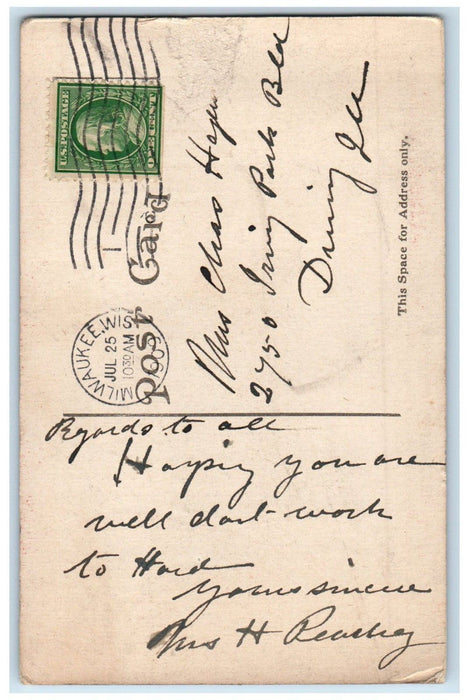 U.S. POSTAGE
ONE CENT
Post Card
MILWAUKEE, WIS.
JUL 25
1030AM
1909
Mrs Chas
2750 Irving Park Bld
Ill
This Space for Address only.
Regards to all
Hoping you are
well dont work
to Hard
Yours sincere
Mrs H